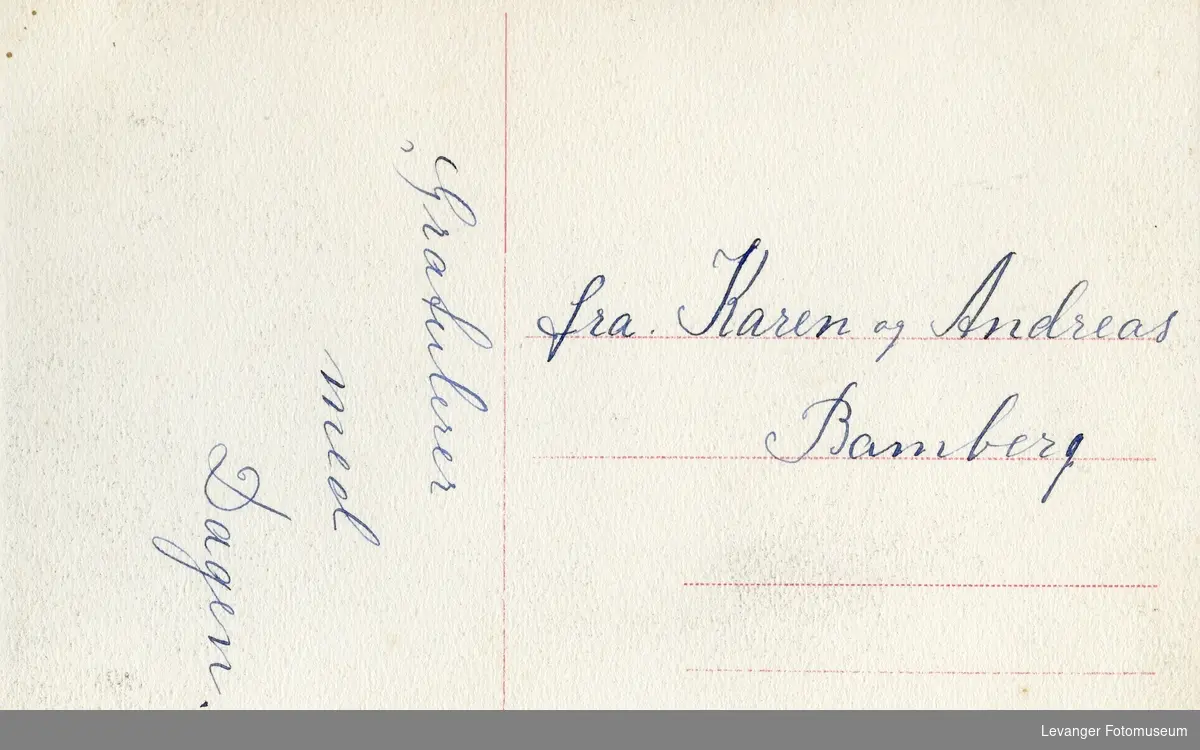 Gratulerer
med
Dagen.
fra. Karen og Andreas
Bamberg
Levanger Fotomuseum